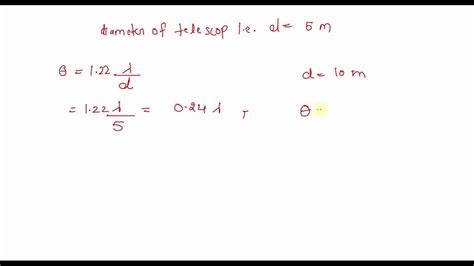 diameter of telescop i.e. d = 5 m
θ = 1.22 λ/d d = 10 m
= 1.22 λ/5 = 0.24 λ , θ